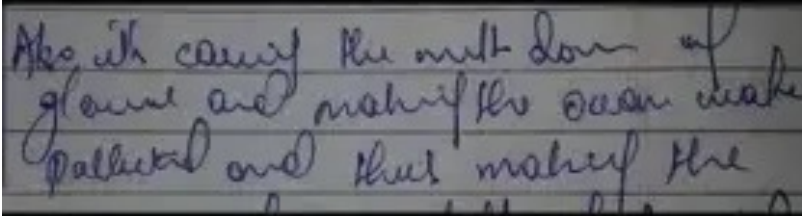 Also it's causing the melt down of
and making the ocean water
Polluted and thus making the